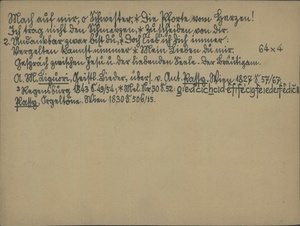 Mach auf mir, o Schwester, * Die Pforte vom Herzen!
Ich trag nicht den Schmerzen, * Zu scheiden von Dir.
2. Undankbar zwar bist du, * Doch lieb ich Dich immer:
Vergelten kannst nimmer * Mein Lieben du mir. 64 x 4
Gespräch zwischen Jesu u. der liebenden Seele. Der Bräutigam.
A. M. Liguori, Geistl. Lieder, übers. v. Ant. Passy, Wien 1827 S. 57/67.
² Regensburg 1843 S. 49/54; * Mel. Nr 30 S. 52:
Passy, Orgeltöne. Wien 1830 S. 306/13.